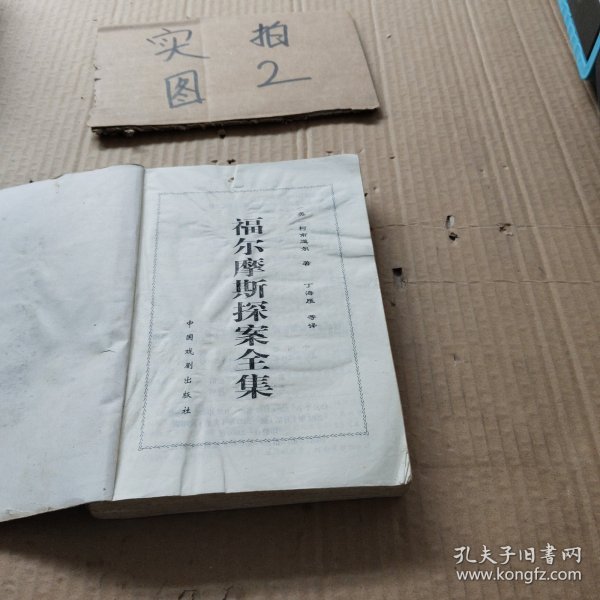 实拍
图2
英 柯南道尔 著 丁海雁 等译
福尔摩斯探案全集
中国戏剧出版社
孔夫子旧书网
www.kongfz.com